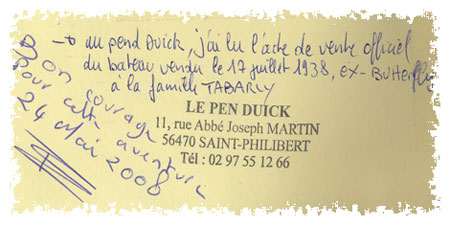 → au pend Duick, j'ai lu l'acte de vente officiel
du bateau vendu le 17 juillet 1938, ex-Butterfly
à la famille TABARLY
Bon courage
pour cette aventure
24 Mai 2008
LE PEN DUICK
11, rue Abbé Joseph MARTIN
56470 SAINT-PHILIBERT
Tél : 02 97 55 12 66